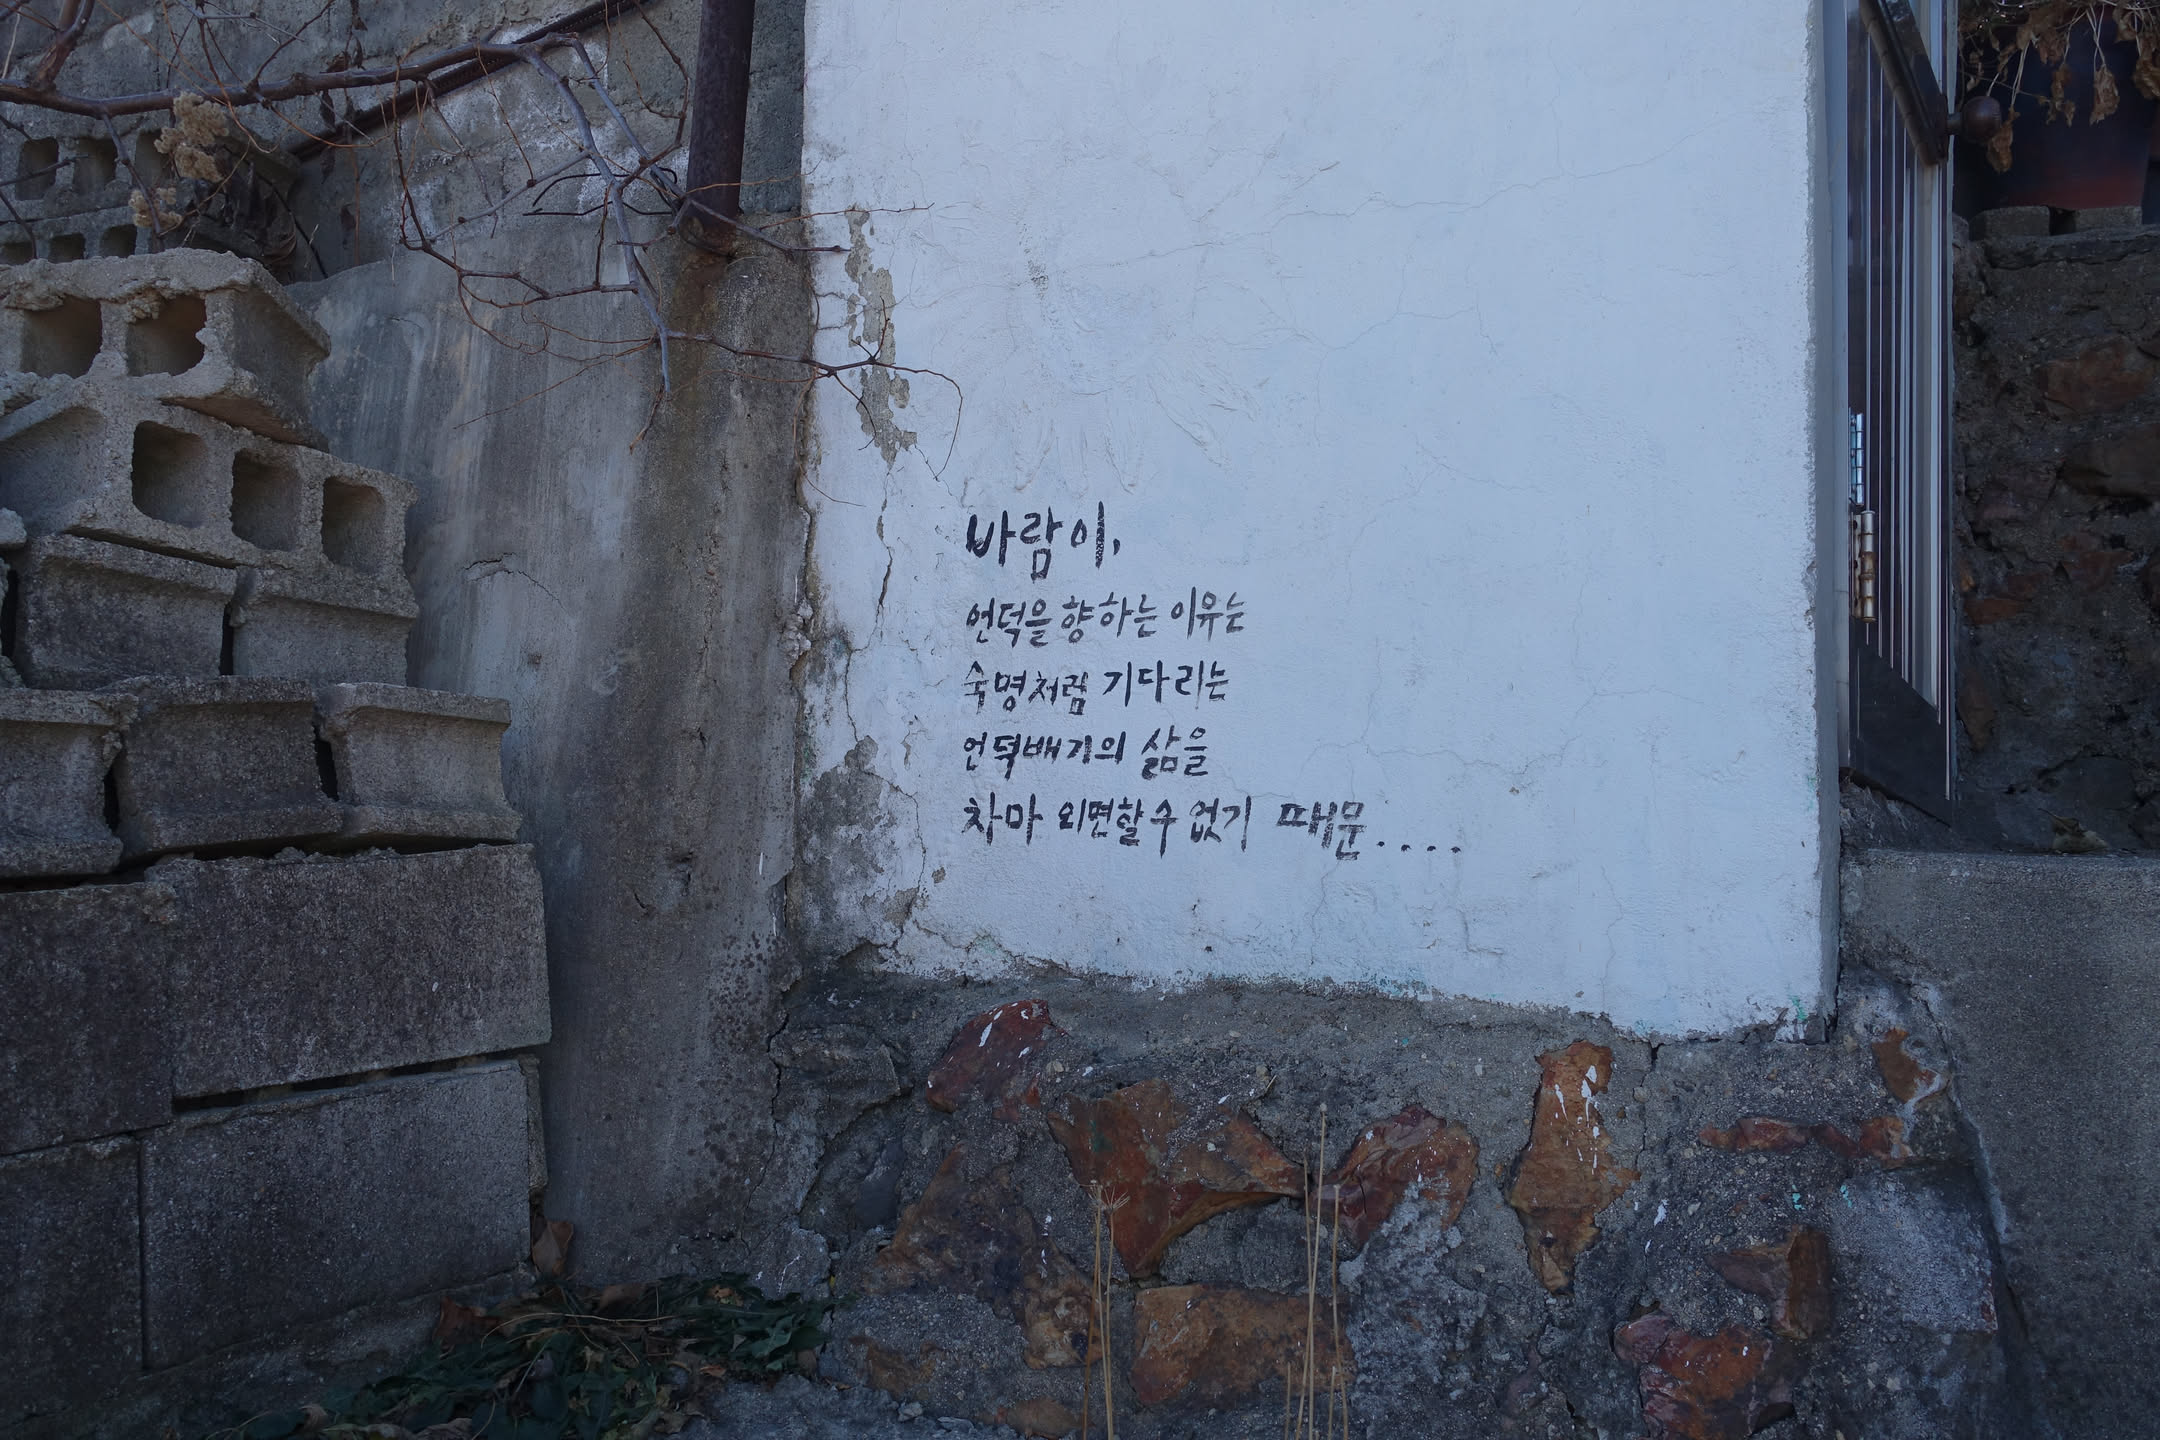 바람이,
언덕을 향하는 이유는
숙명처럼 기다리는
언덕배기의 삶을
차마 외면할 수 없기 때문....